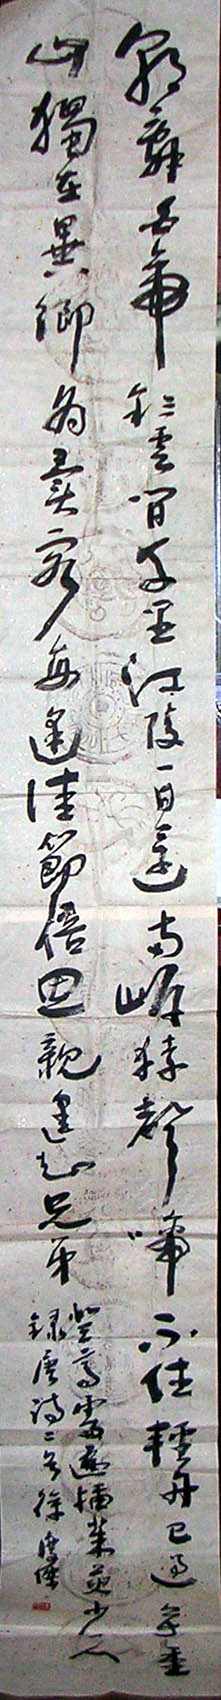 朝辭白帝彩雲間千里江陵一日還兩岸猿聲啼不住輕舟已過萬重
山獨在異鄉為異客每逢佳節倍思親遙知兄弟
登高處遍插茱萸少一人
錄唐詩二首徐